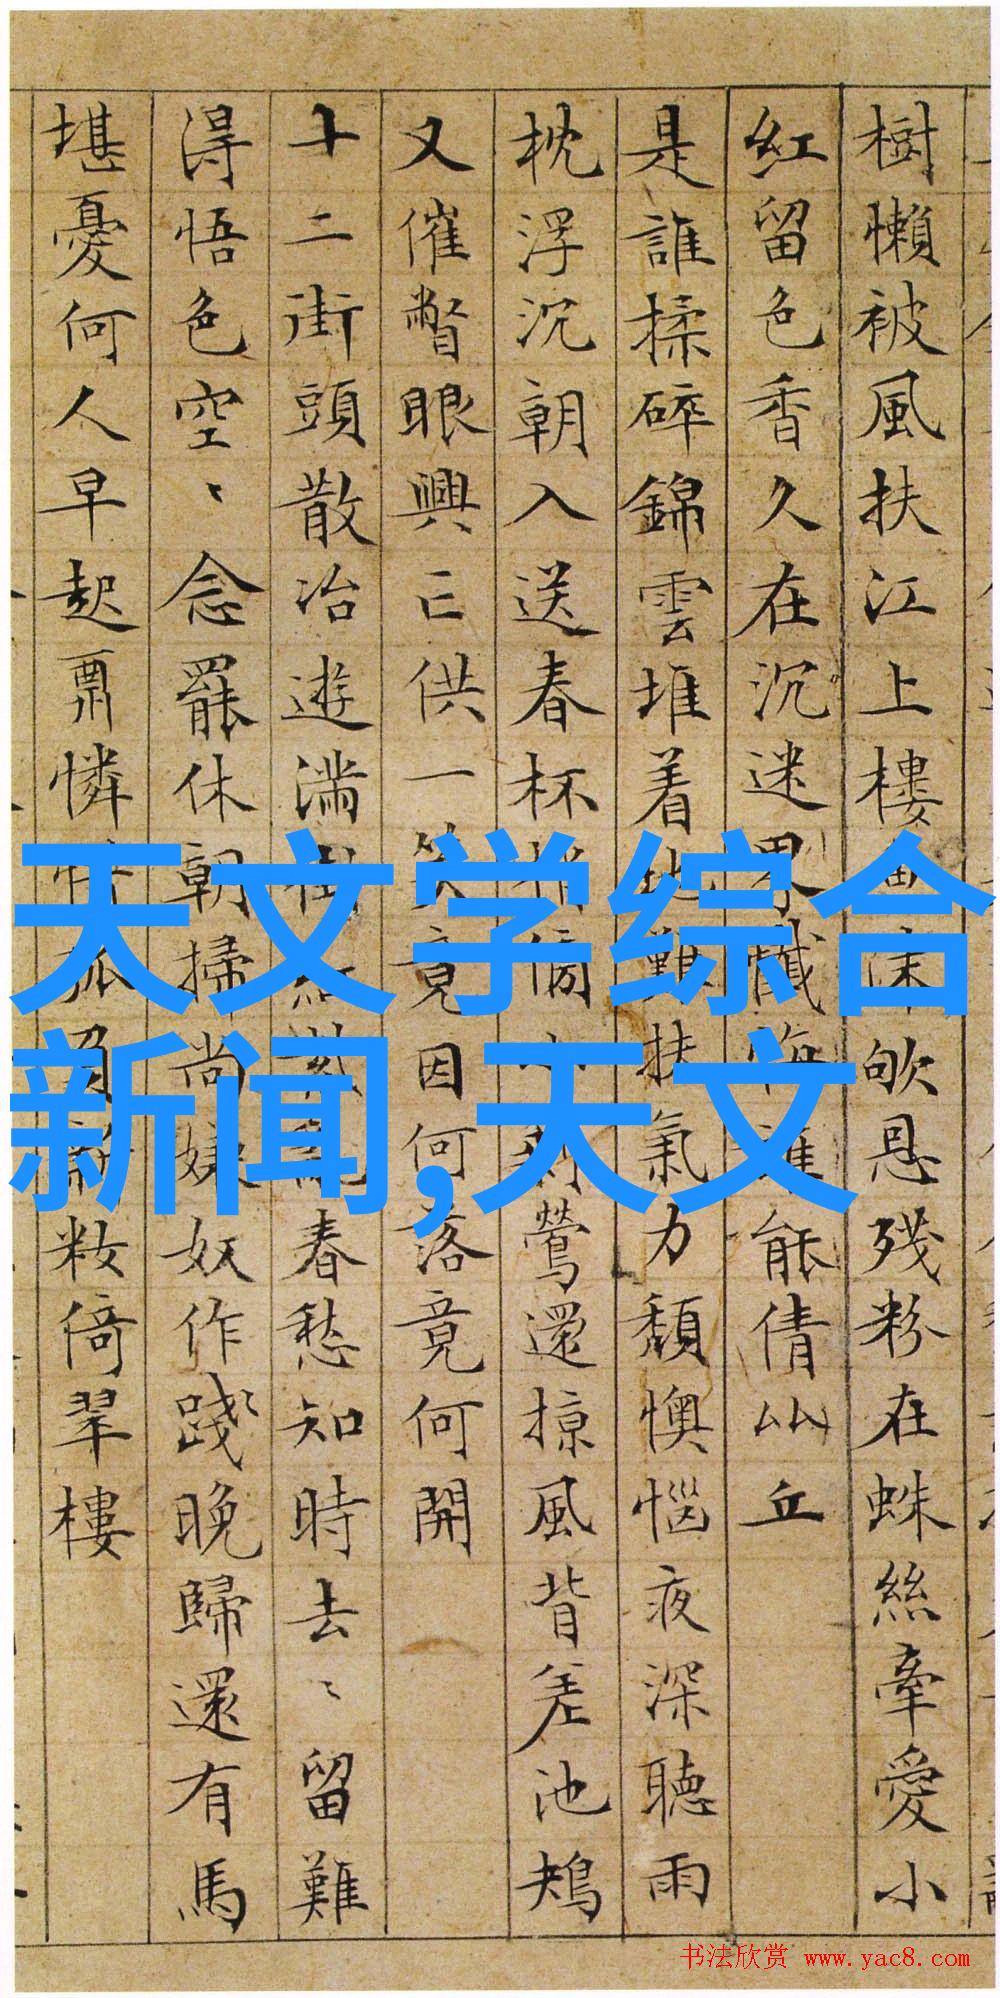 樹懶被風扶江上樓欹恩殘粉在蛛絲牽愛小
紅留色香久在沉迷界懺悔誰能倩比丘
是誰揉碎錦雲堆着地難扶氣力頹懊惱夜深聽雨
枕浮沉朝入送春杯鶯還掠風背差池
又催瞥眼興亡供一笑竟因何落竟何開
十二街頭散冶遊滿春愁知時去〻留難
得悟色空〻念罷休朝掃尚嫌奴作踐晚歸還有馬
堪憂何人早起憐惜孤負新妝倚翠樓
天文学综合
新闻,天文
书法欣赏 www.yac8.com